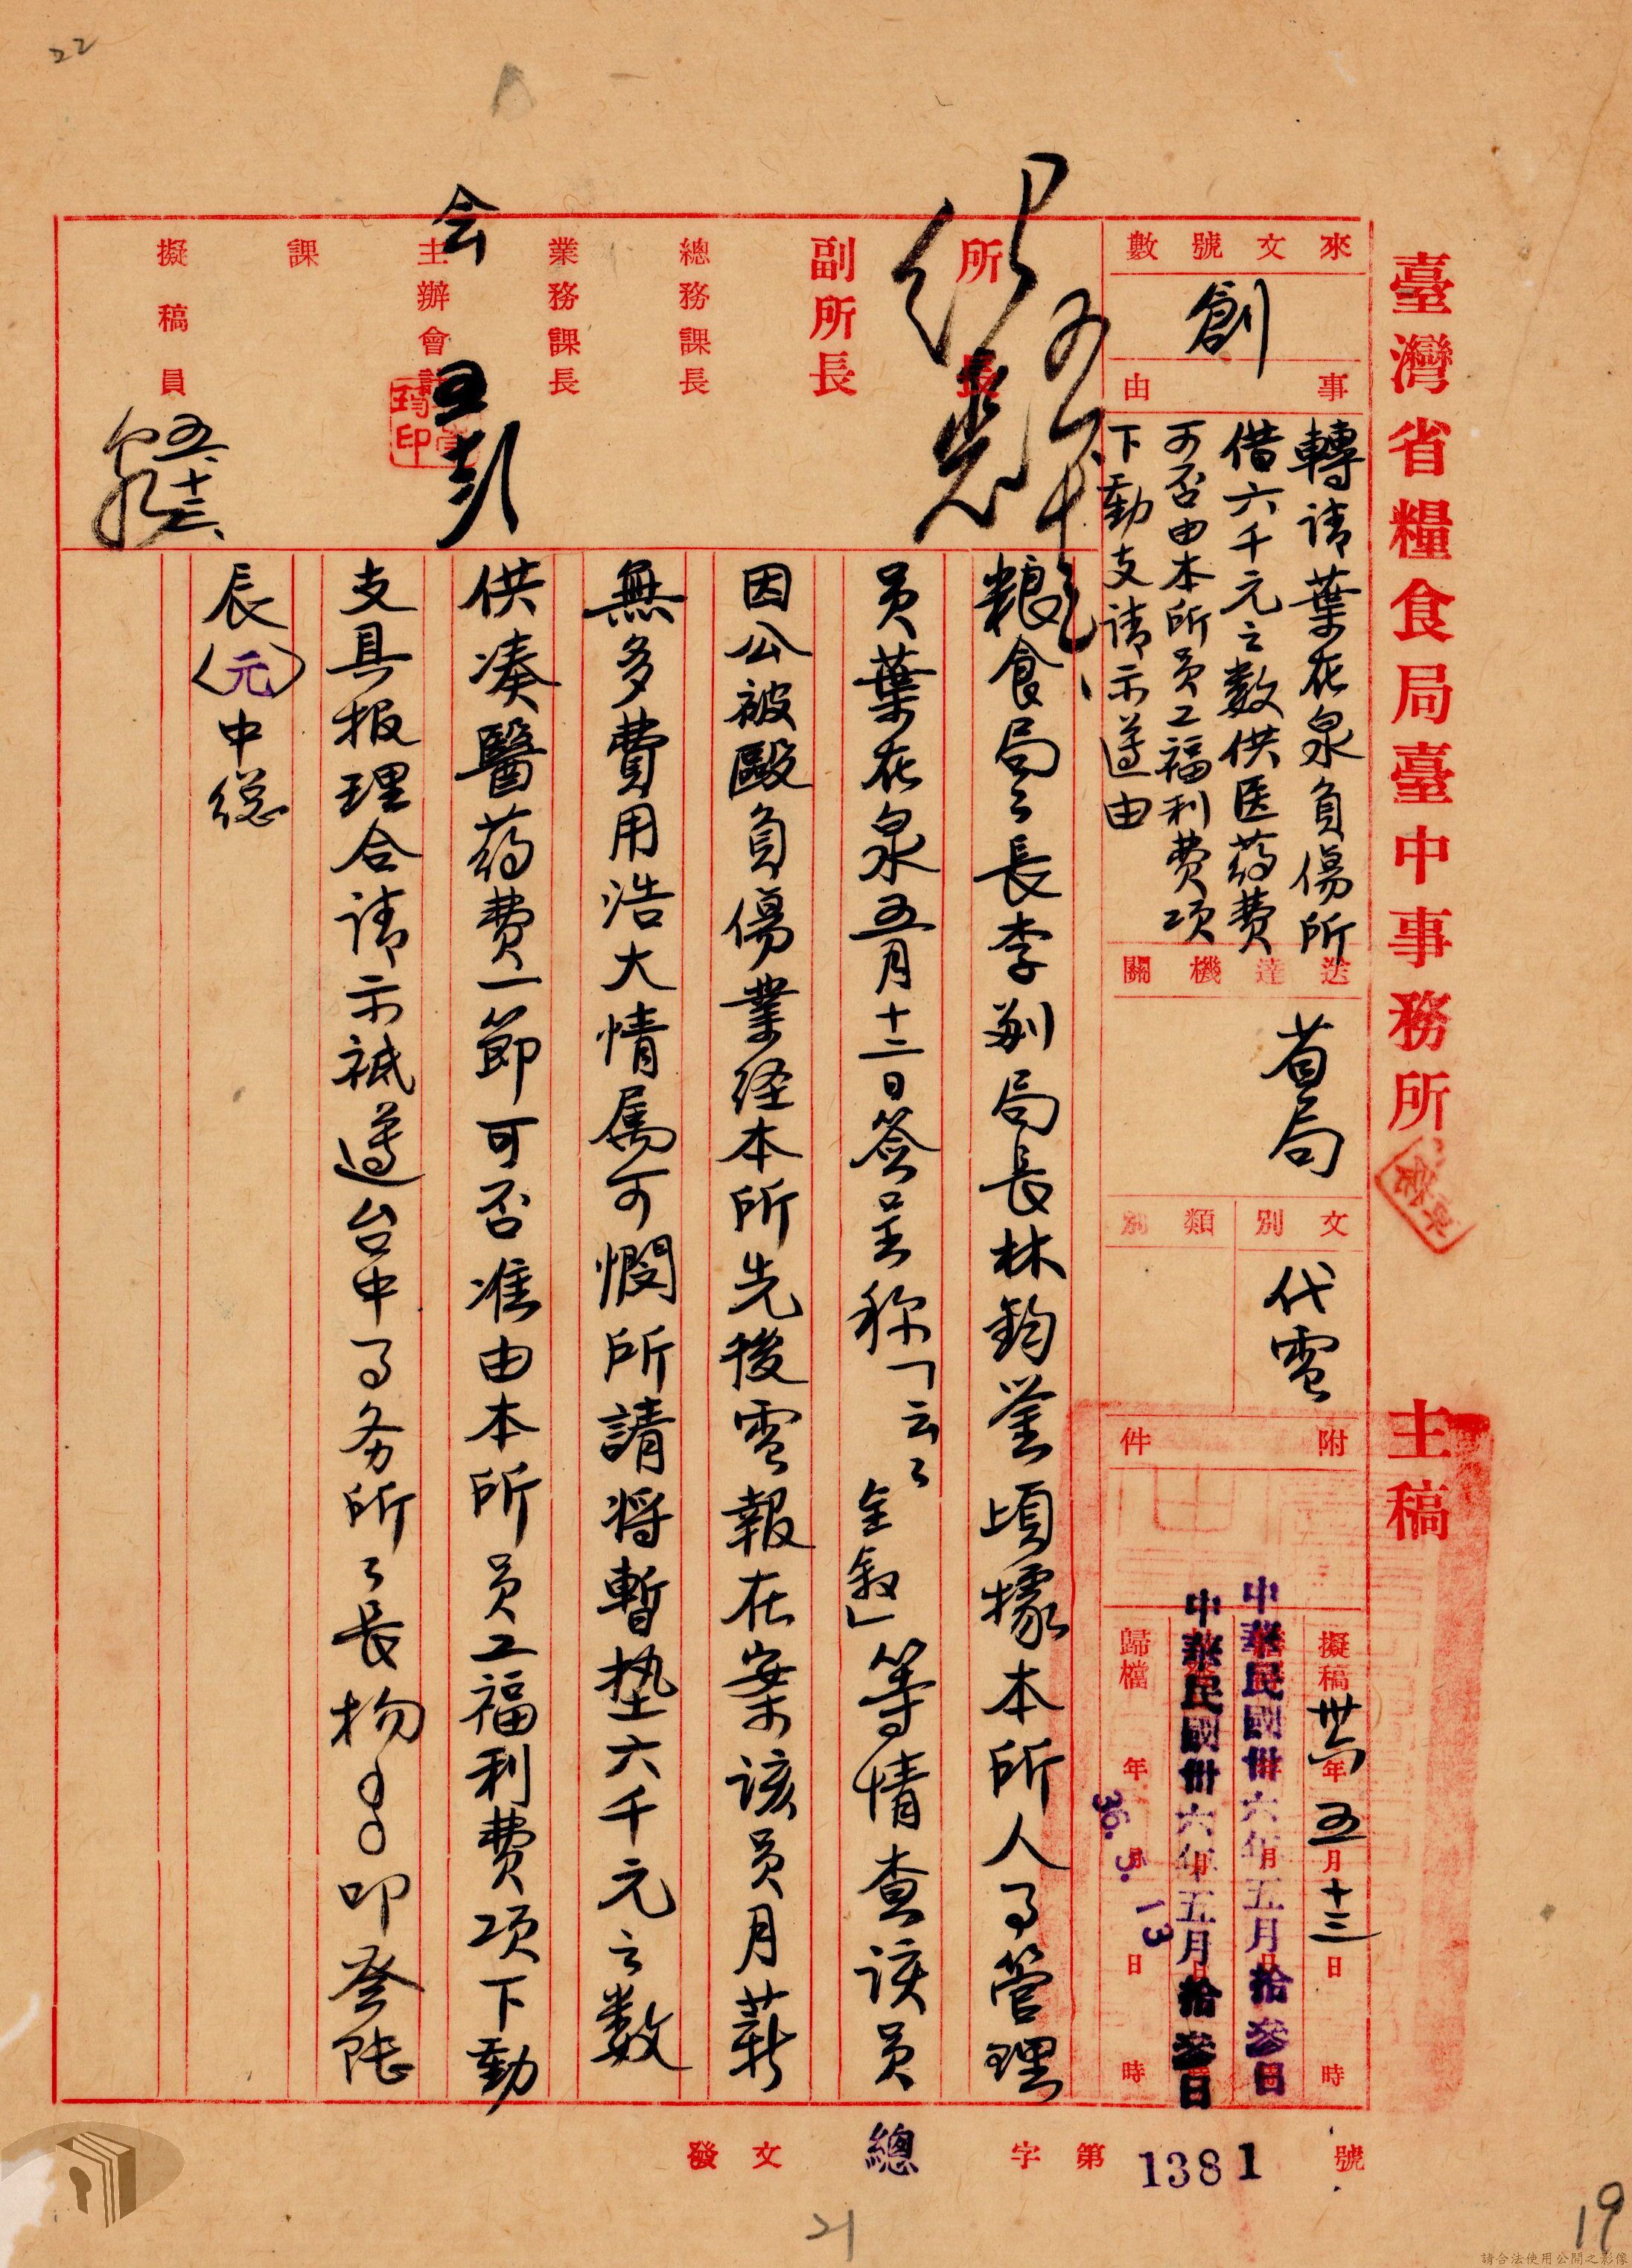 臺灣省糧食局臺中事務所 主稿
來文號數
創
事由
轉请葉在泉負傷所
借六千元之數供医药费
可否由本所员工福利费项
下動支请示遵由
送達機關
省局
文別
代電
類別
附件
擬稿 卅六年五月十三日 時
中華民國卅六年五月拾叁日
中華民國卅六年五月拾叁日
歸檔 年 月 日 時
36.5.13
所長
副所長
總務課長
業務課長
主辦會計
会
課
擬稿員
五、十三、
粮食局々長李副局長林鈞鉴頃據本所人事管理
员葉在泉五月十二日签呈称「云々全叙」等情查该员
因公被毆負傷業经本所先後電報在案该员月薪
無多費用浩大情属可憫所請将暫垫六千元之数
供凑醫药费一節可否准由本所员工福利费项下動
支具报理合请示祗遵台中事务所々長杨 叩
辰(元)中總
發文 總字第 1381 號
22
21
19
請合法使用公開之影像